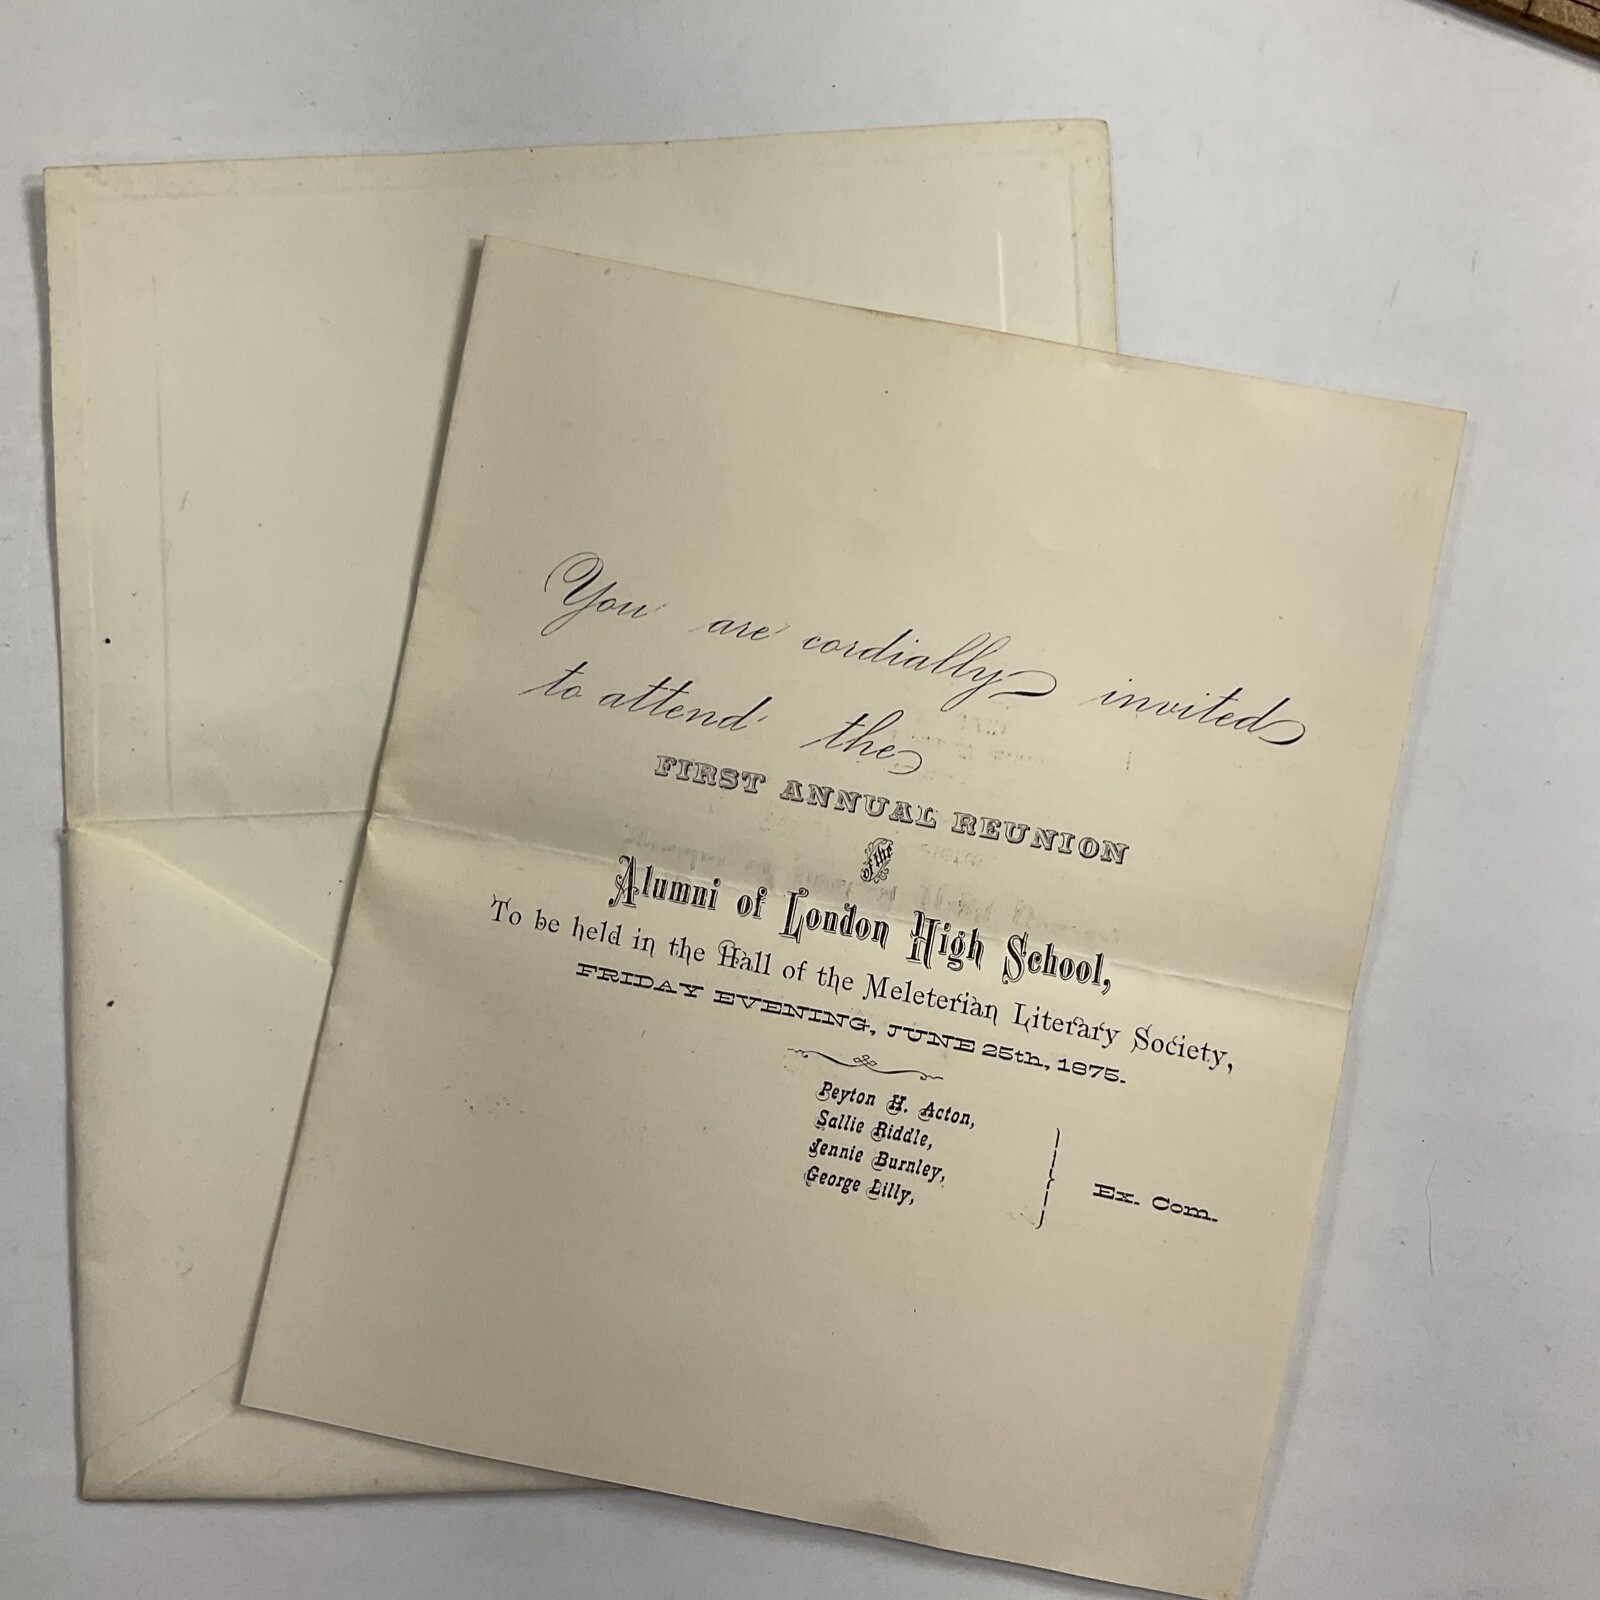 You are cordially invited
to attend the
FIRST ANNUAL REUNION
of the
Alumni of London High School,
To be held in the Hall of the Meleterian Literary Society,
FRIDAY EVENING, JUNE 25th, 1875.
Peyton H. Acton,
Sallie Riddle,
Jennie Burnley,
George Lilly,
Ex. Com.